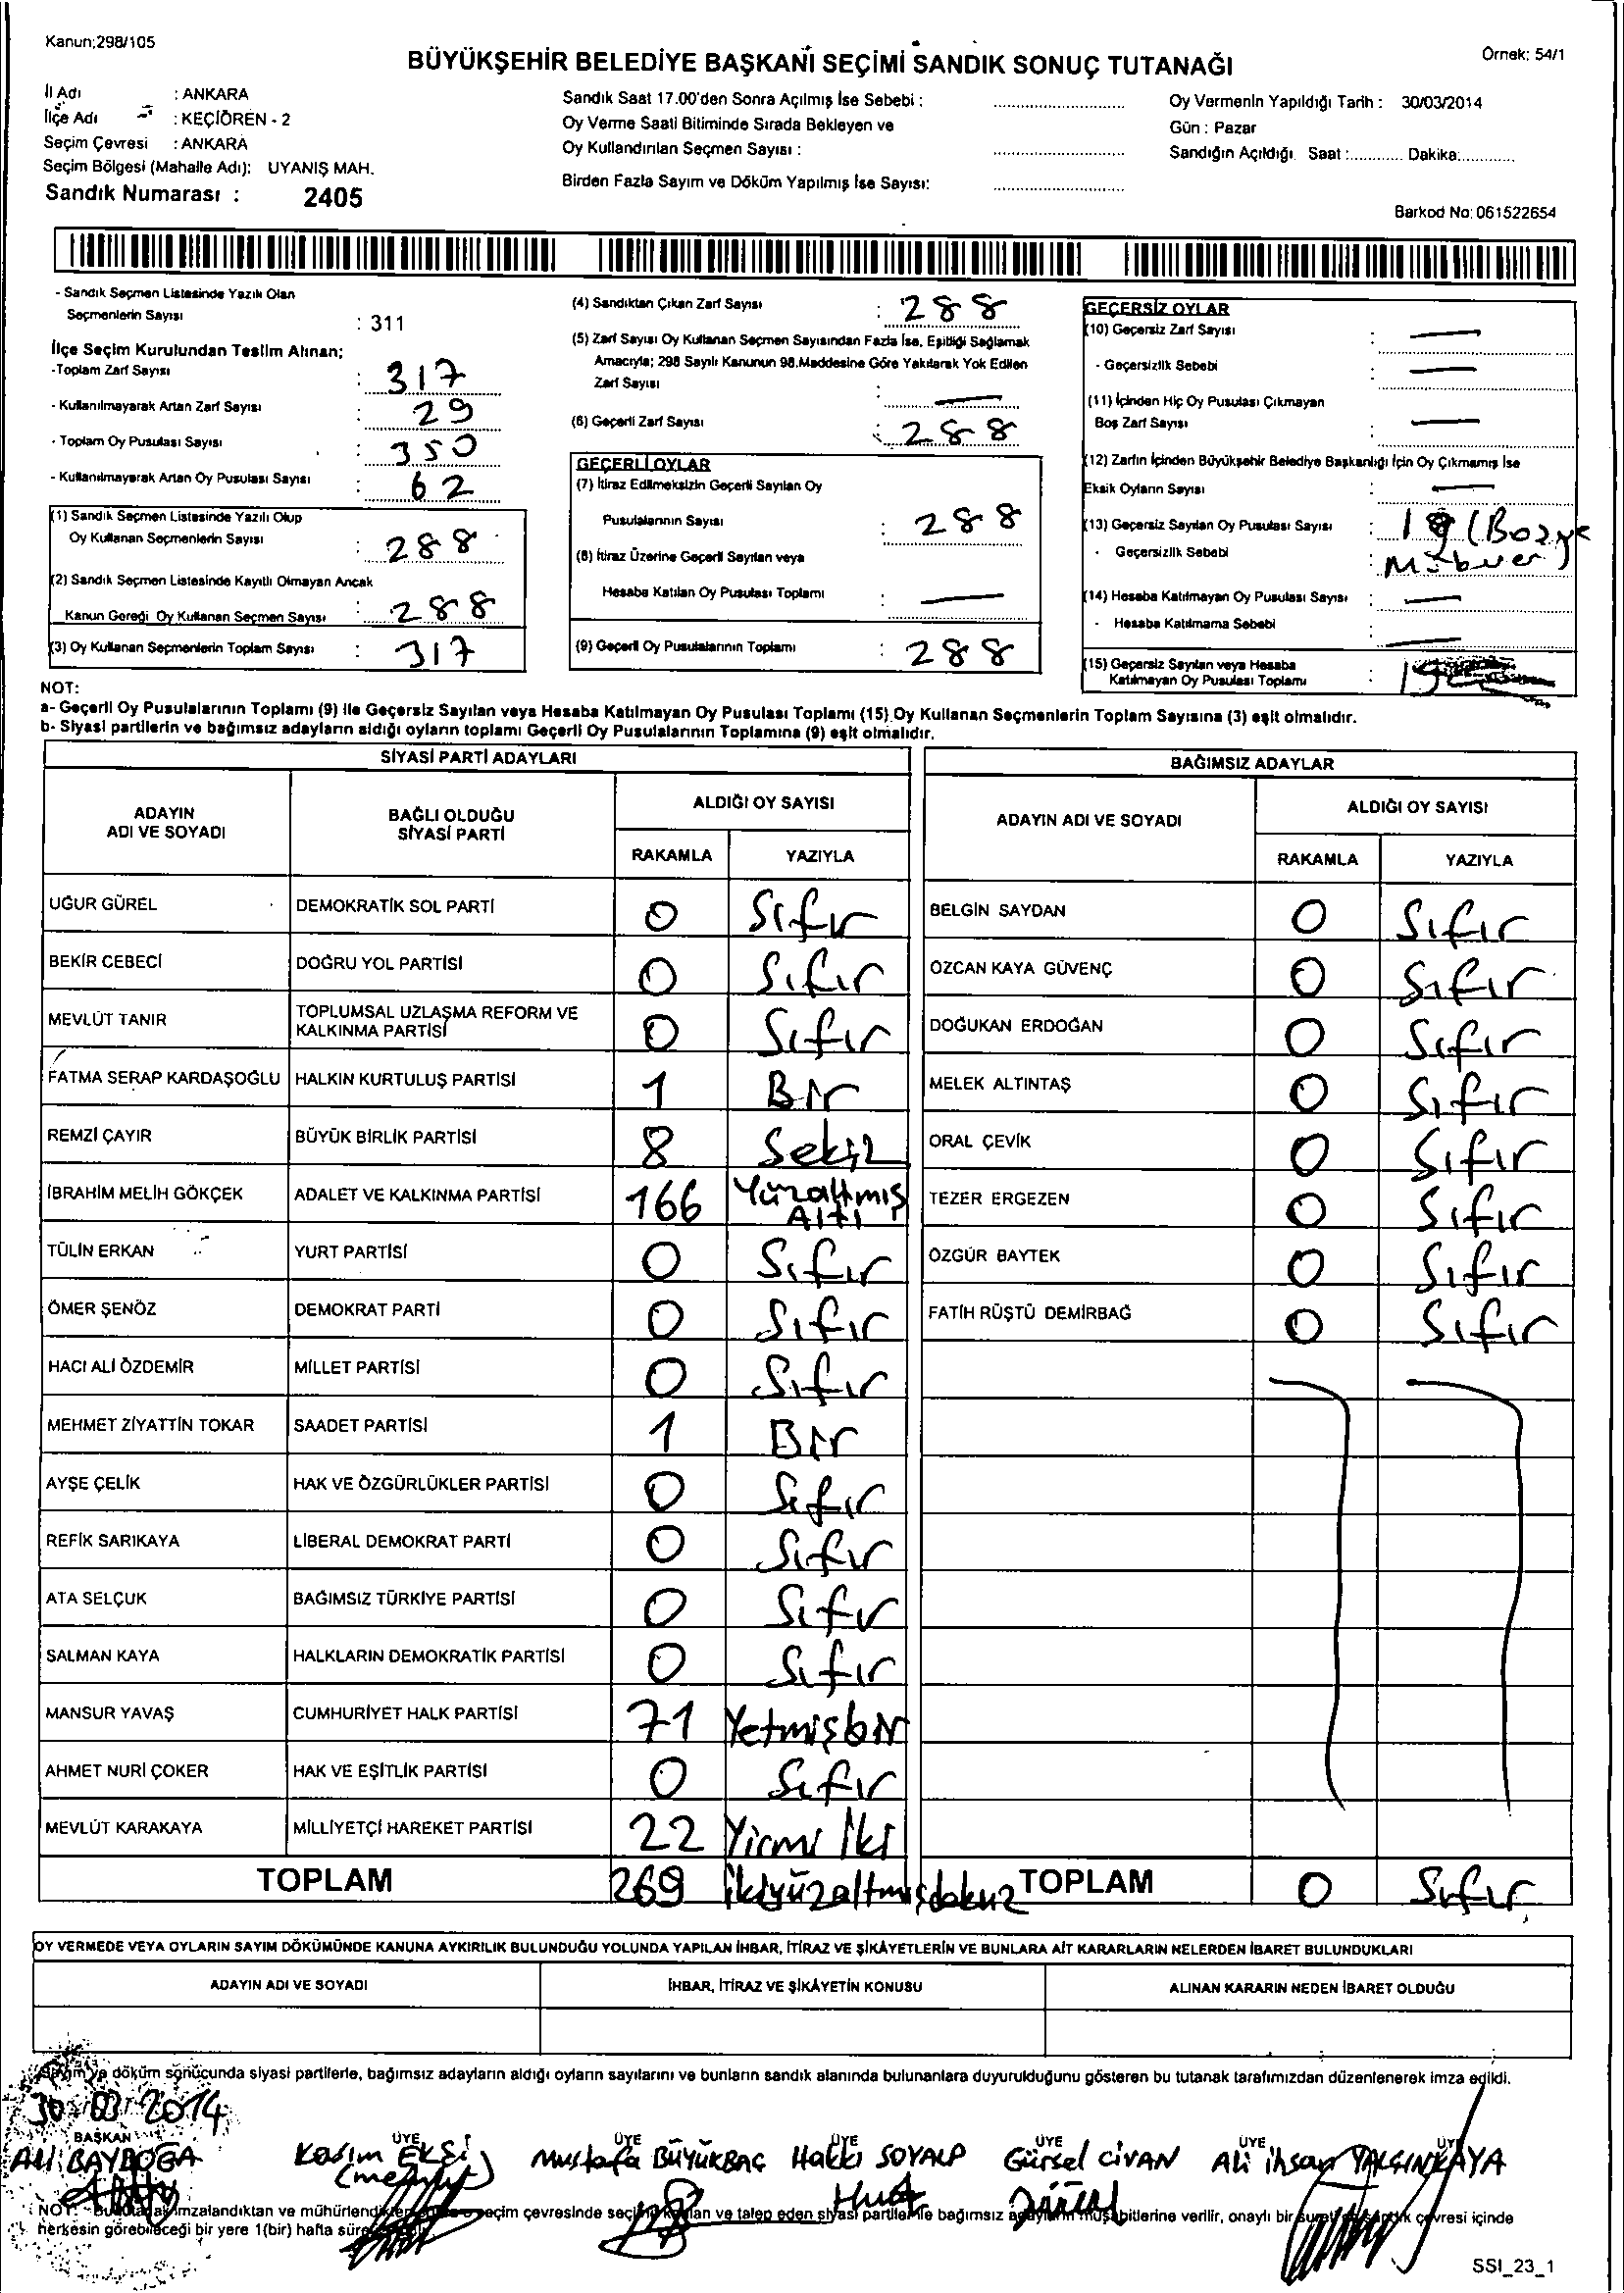 Kanun;298/105
BÜYÜKŞEHİR BELEDİYE BAŞKANI SEÇİMİ SANDIK SONUÇ TUTANAĞI
Örnek: 54/1
İl Adı : ANKARA
İlçe Adı : KEÇİÖREN - 2
Seçim Çevresi : ANKARA
Seçim Bölgesi (Mahalle Adı): UYANIŞ MAH.
Sandık Numarası : 2405
Sandık Saat 17.00'den Sonra Açılmış İse Sebebi :
Oy Verme Saati Bitiminde Sırada Bekleyen ve
Oy Kullandırılan Seçmen Sayısı :
Birden Fazla Sayım ve Döküm Yapılmış İse Sayısı:
Oy Vermenin Yapıldığı Tarih : 30/03/2014
Gün : Pazar
Sandığın Açıldığı Saat :............ Dakika:............
Barkod No: 061522654
- Sandık Seçmen Listesinde Yazılı Olan
Seçmenlerin Sayısı : 311
İlçe Seçim Kurulundan Teslim Alınan;
-Toplam Zarf Sayısı : 317
- Kullanılmayarak Artan Zarf Sayısı : 29
- Toplam Oy Pusulası Sayısı : 350
- Kullanılmayarak Artan Oy Pusulası Sayısı : 62
(1) Sandık Seçmen Listesinde Yazılı Olup
Oy Kullanan Seçmenlerin Sayısı : 288
(2) Sandık Seçmen Listesinde Kayıtlı Olmayan Ancak
Kanun Gereği Oy Kullanan Seçmen Sayısı : 288
(3) Oy Kullanan Seçmenlerin Toplam Sayısı : 317
(4) Sandıktan Çıkan Zarf Sayısı : 288
(5) Zarf Sayısı Oy Kullanan Seçmen Sayısından Fazla İse, Eşitliği Sağlamak
Amacıyla; 298 Sayılı Kanunun 98.Maddesine Göre Yakılarak Yok Edilen
Zarf Sayısı : —
(6) Geçerli Zarf Sayısı : 288
GEÇERLİ OYLAR
(7) İtiraz Edilmeksizin Geçerli Sayılan Oy
Pusulalarının Sayısı : 288
(8) İtiraz Üzerine Geçerli Sayılan veya
Hesaba Katılan Oy Pusulası Toplamı : —
(9) Geçerli Oy Pusulalarının Toplamı : 288
GEÇERSİZ OYLAR
(10) Geçersiz Zarf Sayısı : —
- Geçersizlik Sebebi : —
(11) İçinden Hiç Oy Pusulası Çıkmayan
Boş Zarf Sayısı : —
(12) Zarfın İçinden Büyükşehir Belediye Başkanlığı İçin Oy Çıkmamış İse
Eksik Oyların Sayısı : —
(13) Geçersiz Sayılan Oy Pusulası Sayısı : 19
- Geçersizlik Sebebi :
(14) Hesaba Katılmayan Oy Pusulası Sayısı : —
- Hesaba Katılmama Sebebi : —
(15) Geçersiz Sayılan veya Hesaba
Katılmayan Oy Pusulası Toplamı : 19
NOT:
a- Geçerli Oy Pusulalarının Toplamı (9) ile Geçersiz Sayılan veya Hesaba Katılmayan Oy Pusulası Toplamı (15) Oy Kullanan Seçmenlerin Toplam Sayısına (3) eşit olmalıdır.
b- Siyasi partilerin ve bağımsız adayların aldığı oyların toplamı Geçerli Oy Pusulalarının Toplamına (9) eşit olmalıdır.
SİYASİ PARTİ ADAYLARI
ADAYIN ADI VE SOYADI BAĞLI OLDUĞU SİYASİ PARTİ ALDIĞI OY SAYISI
RAKAMLA YAZIYLA
UĞUR GÜREL DEMOKRATİK SOL PARTİ 0 Sıfır
BEKİR CEBECİ DOĞRU YOL PARTİSİ 0 Sıfır
MEVLÜT TANIR TOPLUMSAL UZLAŞMA REFORM VE KALKINMA PARTİSİ 0 Sıfır
FATMA SERAP KARDAŞOĞLU HALKIN KURTULUŞ PARTİSİ 1 Bir
REMZİ ÇAYIR BÜYÜK BİRLİK PARTİSİ 8 Sekiz
İBRAHİM MELİH GÖKÇEK ADALET VE KALKINMA PARTİSİ 166 Yüzaltmış Altı
TÜLİN ERKAN YURT PARTİSİ 0 Sıfır
ÖMER ŞENÖZ DEMOKRAT PARTİ 0 Sıfır
HACI ALİ ÖZDEMİR MİLLET PARTİSİ 0 Sıfır
MEHMET ZİYATTİN TOKAR SAADET PARTİSİ 1 Bir
AYŞE ÇELİK HAK VE ÖZGÜRLÜKLER PARTİSİ 0 Sıfır
REFİK SARIKAYA LİBERAL DEMOKRAT PARTİ 0 Sıfır
ATA SELÇUK BAĞIMSIZ TÜRKİYE PARTİSİ 0 Sıfır
SALMAN KAYA HALKLARIN DEMOKRATİK PARTİSİ 0 Sıfır
MANSUR YAVAŞ CUMHURİYET HALK PARTİSİ 71 Yetmişbir
AHMET NURİ ÇOKER HAK VE EŞİTLİK PARTİSİ 0 Sıfır
MEVLÜT KARAKAYA MİLLİYETÇİ HAREKET PARTİSİ 22 Yirmi İki
TOPLAM 269 İkiyüzaltmışdokuz
BAĞIMSIZ ADAYLAR
ADAYIN ADI VE SOYADI ALDIĞI OY SAYISI
RAKAMLA YAZIYLA
BELGİN SAYDAN 0 Sıfır
ÖZCAN KAYA GÜVENÇ 0 Sıfır
DOĞUKAN ERDOĞAN 0 Sıfır
MELEK ALTINTAŞ 0 Sıfır
ORAL ÇEVİK 0 Sıfır
TEZER ERGEZEN 0 Sıfır
ÖZGÜR BAYTEK 0 Sıfır
FATİH RÜŞTÜ DEMİRBAĞ 0 Sıfır
TOPLAM 0 Sıfır
OY VERMEDE VEYA OYLARIN SAYIM DÖKÜMÜNDE KANUNA AYKIRILIK BULUNDUĞU YOLUNDA YAPILAN İHBAR, İTİRAZ VE ŞİKÂYETLERİN VE BUNLARA AİT KARARLARIN NELERDEN İBARET BULUNDUKLARI
ADAYIN ADI VE SOYADI İHBAR, İTİRAZ VE ŞİKÂYETİN KONUSU ALINAN KARARIN NEDEN İBARET OLDUĞU
Sayım ve döküm sonucunda siyasi partilerle, bağımsız adayların aldığı oyların sayılarını ve bunların sandık alanında bulunanlara duyurulduğunu gösteren bu tutanak tarafımızdan düzenlenerek imza edildi.
30.03.2014
BAŞKAN ÜYE ÜYE ÜYE ÜYE ÜYE ÜYE
Ali BAYBOĞA Kasım EKŞİ Mustafa BÜYÜKBAŞ Hakkı SOYALP Gürsel CİVAN Ali ihsan YALÇINKAYA
NOT: imzalandıktan ve mühürlendikten seçim çevresinde ve talep eden siyasi partilerle bağımsız adayların müşahitlerine verilir, onaylı bir çevresi içinde
herkesin görebileceği bir yere 1(bir) hafta
SSI_23_1